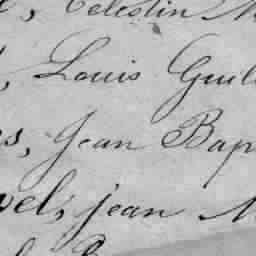 , Celestin M
, Louis Guil
es, Jean Bap
vel, jean M